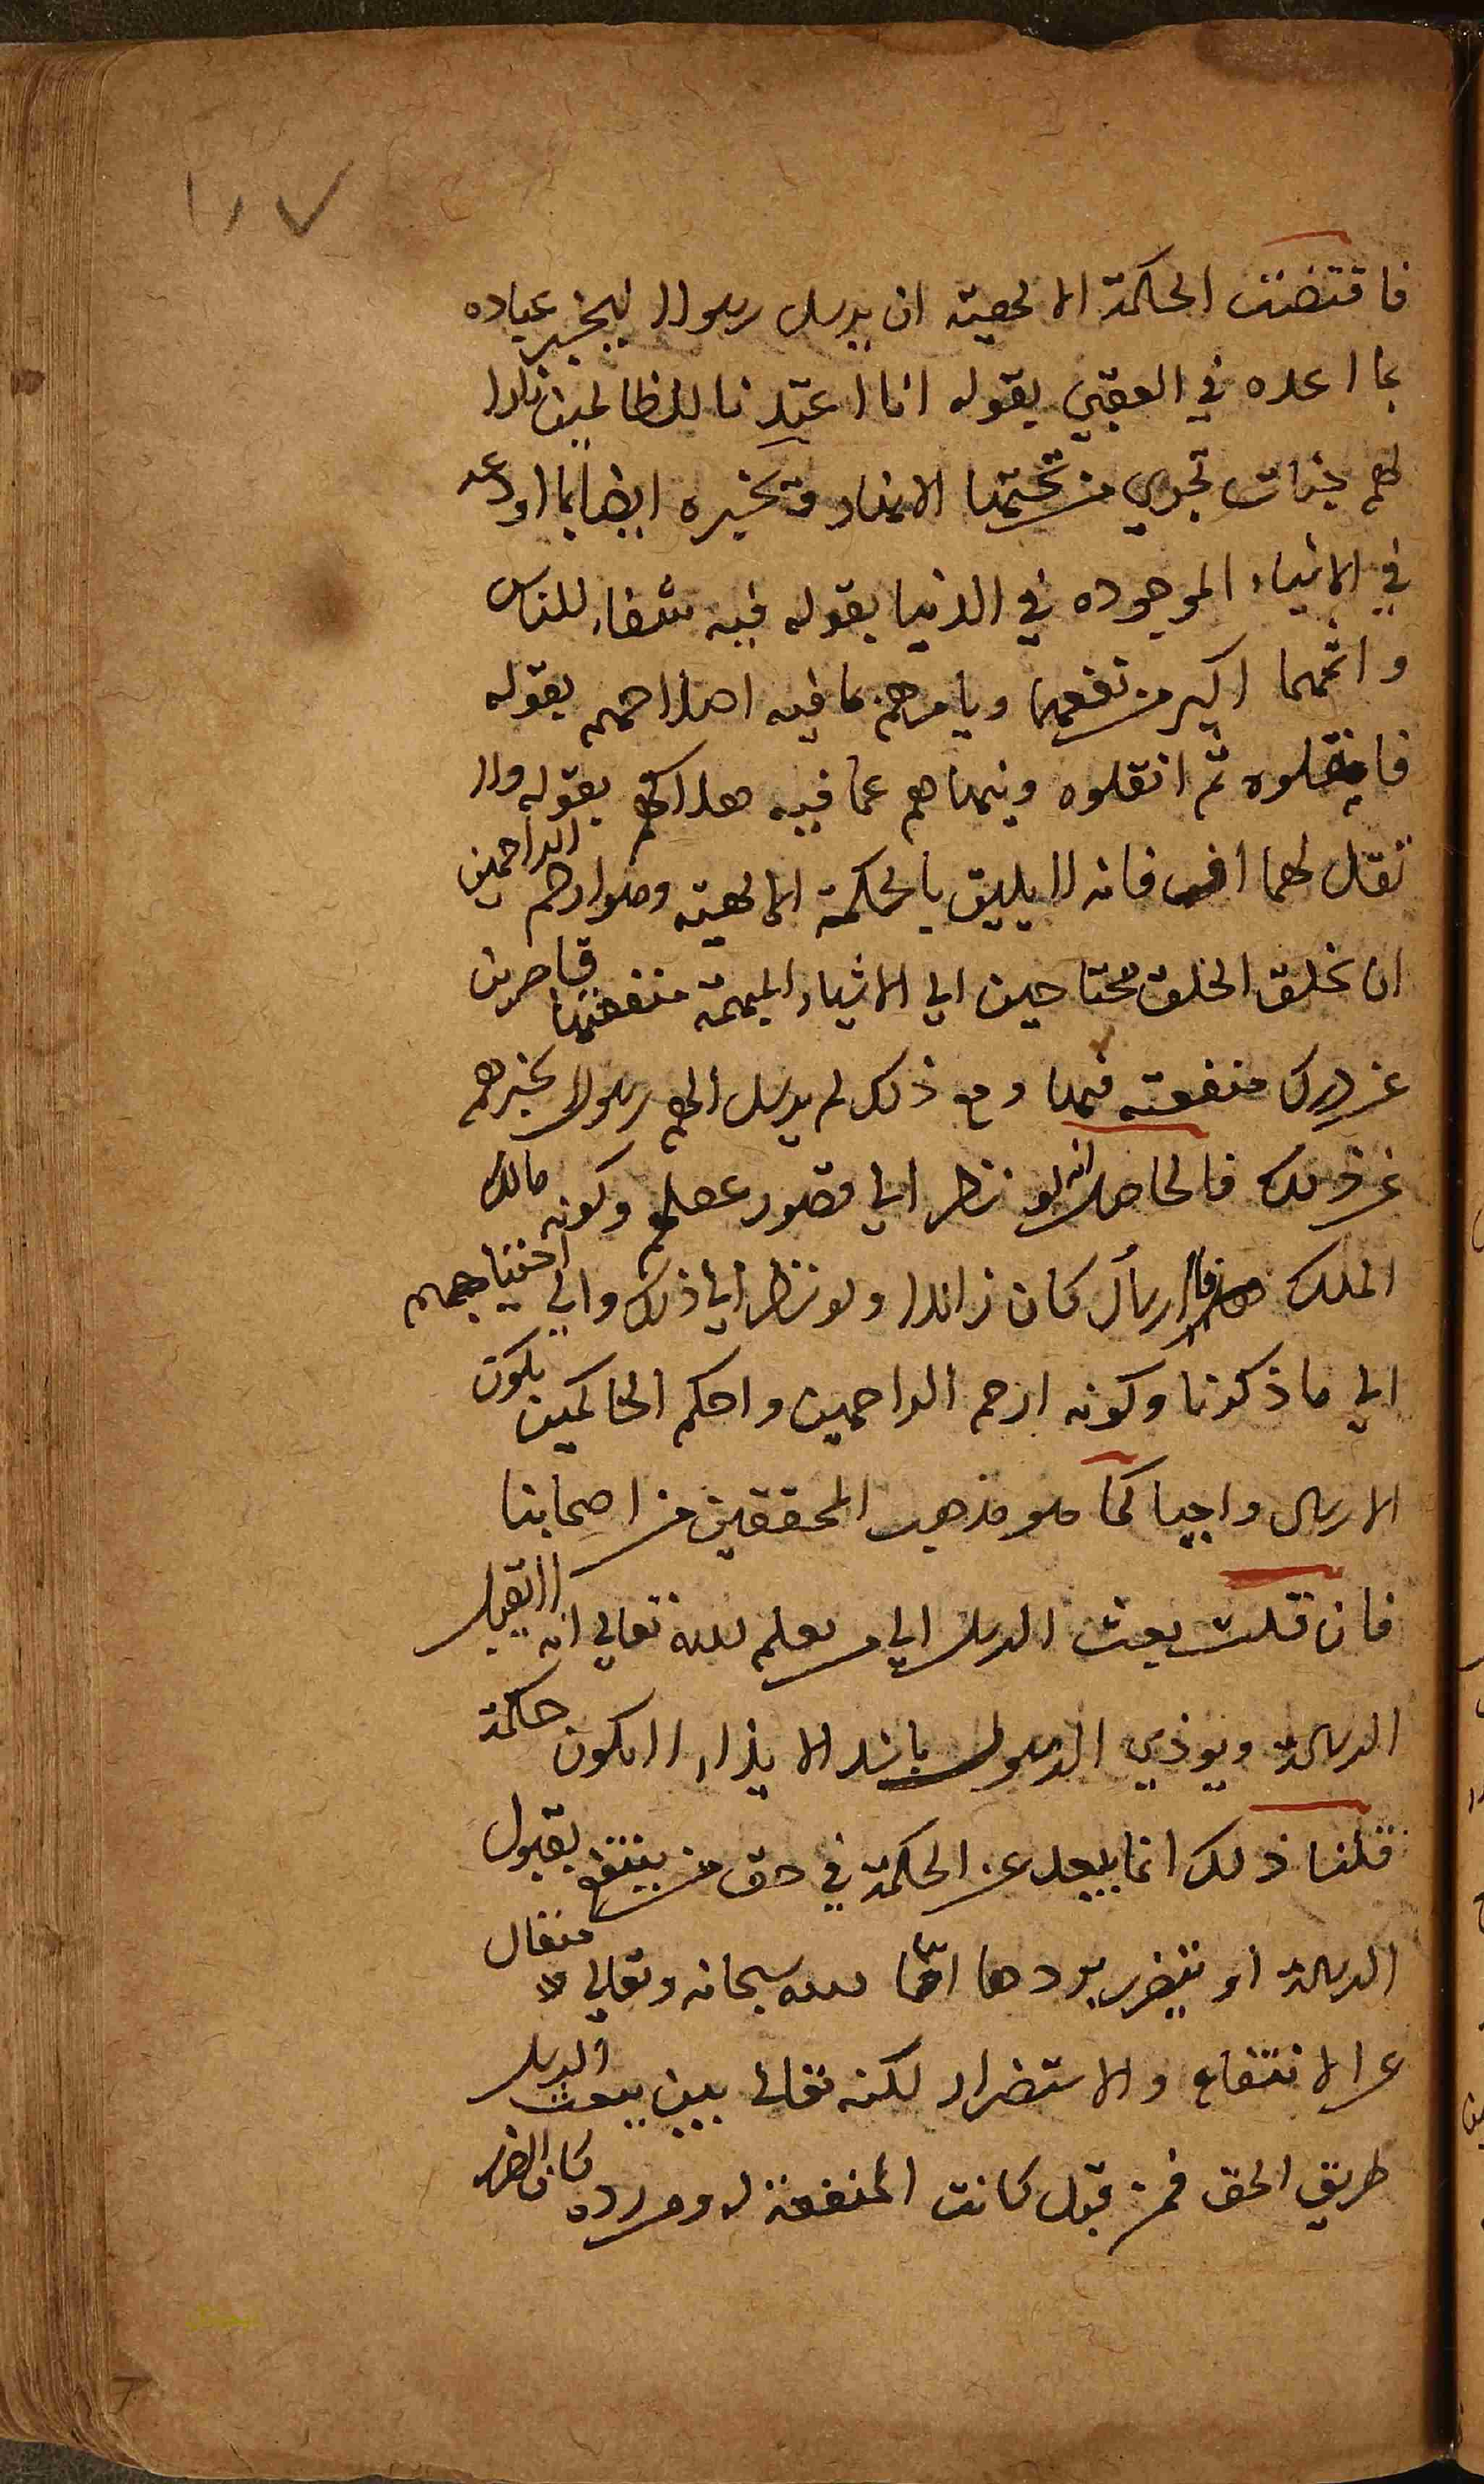 ١١٧
فاقتضت الحكمة الالهية ان يرسل رسولا ليخبر عباده
بما اعده في العقبي بقوله انا اعتدنا للظالمين نارا
لهم جنات تجري من تحتها الانهار وتخبره ايضا بما اودعه
في الاشياء الموجوده في الدنيا بقوله فيه شفاء للناس
واثمهما اكبر من نفعهما ويامرهم بما فيه اصلاحهم بقوله
ثم انقلوه وينهاهم عما فيه هلاكهم بقوله ولا
تقل لهما اف فانه لا يليق بالحكمة الالهية وهو ارحم الراحمين
ان يخلق الخلق محتاجين الي الاشياء المبهمة منفعتها قاصرين
عن درك منفعته فيها ومع ذلك لم يرسل اليهم رسولا يخبرهم
عن ذلك فالحاصل انه لو نظر الي قصور عقلهم وكونه مالك
الملك فالارسال كان زائدا ولو نظر الي ذلك والي احتياجهم
الي ما ذكرنا وكونه ارحم الراحمين واحكم الحاكمين يكون
الارسال واجبا كما هو مذهب المحققين من اصحابنا
فان قلت بعث الرسل الي من يعلم الله تعالي انه لا يقبل
الرسالة ويوذي الرسول باشد الايذاء لا يكون حكمة
قلنا ذلك انما يبعد عن الحكمة في حق من ينتفع بقبول
الرسالة او يتضرر بردها اما الله سبحانه وتعالي متعال
عن الانتفاع والاستضرار لكنه تعالي بين ببعث الرسل
طريق الحق فمن قبل كانت المنفعة له ومن رده كان الضرر